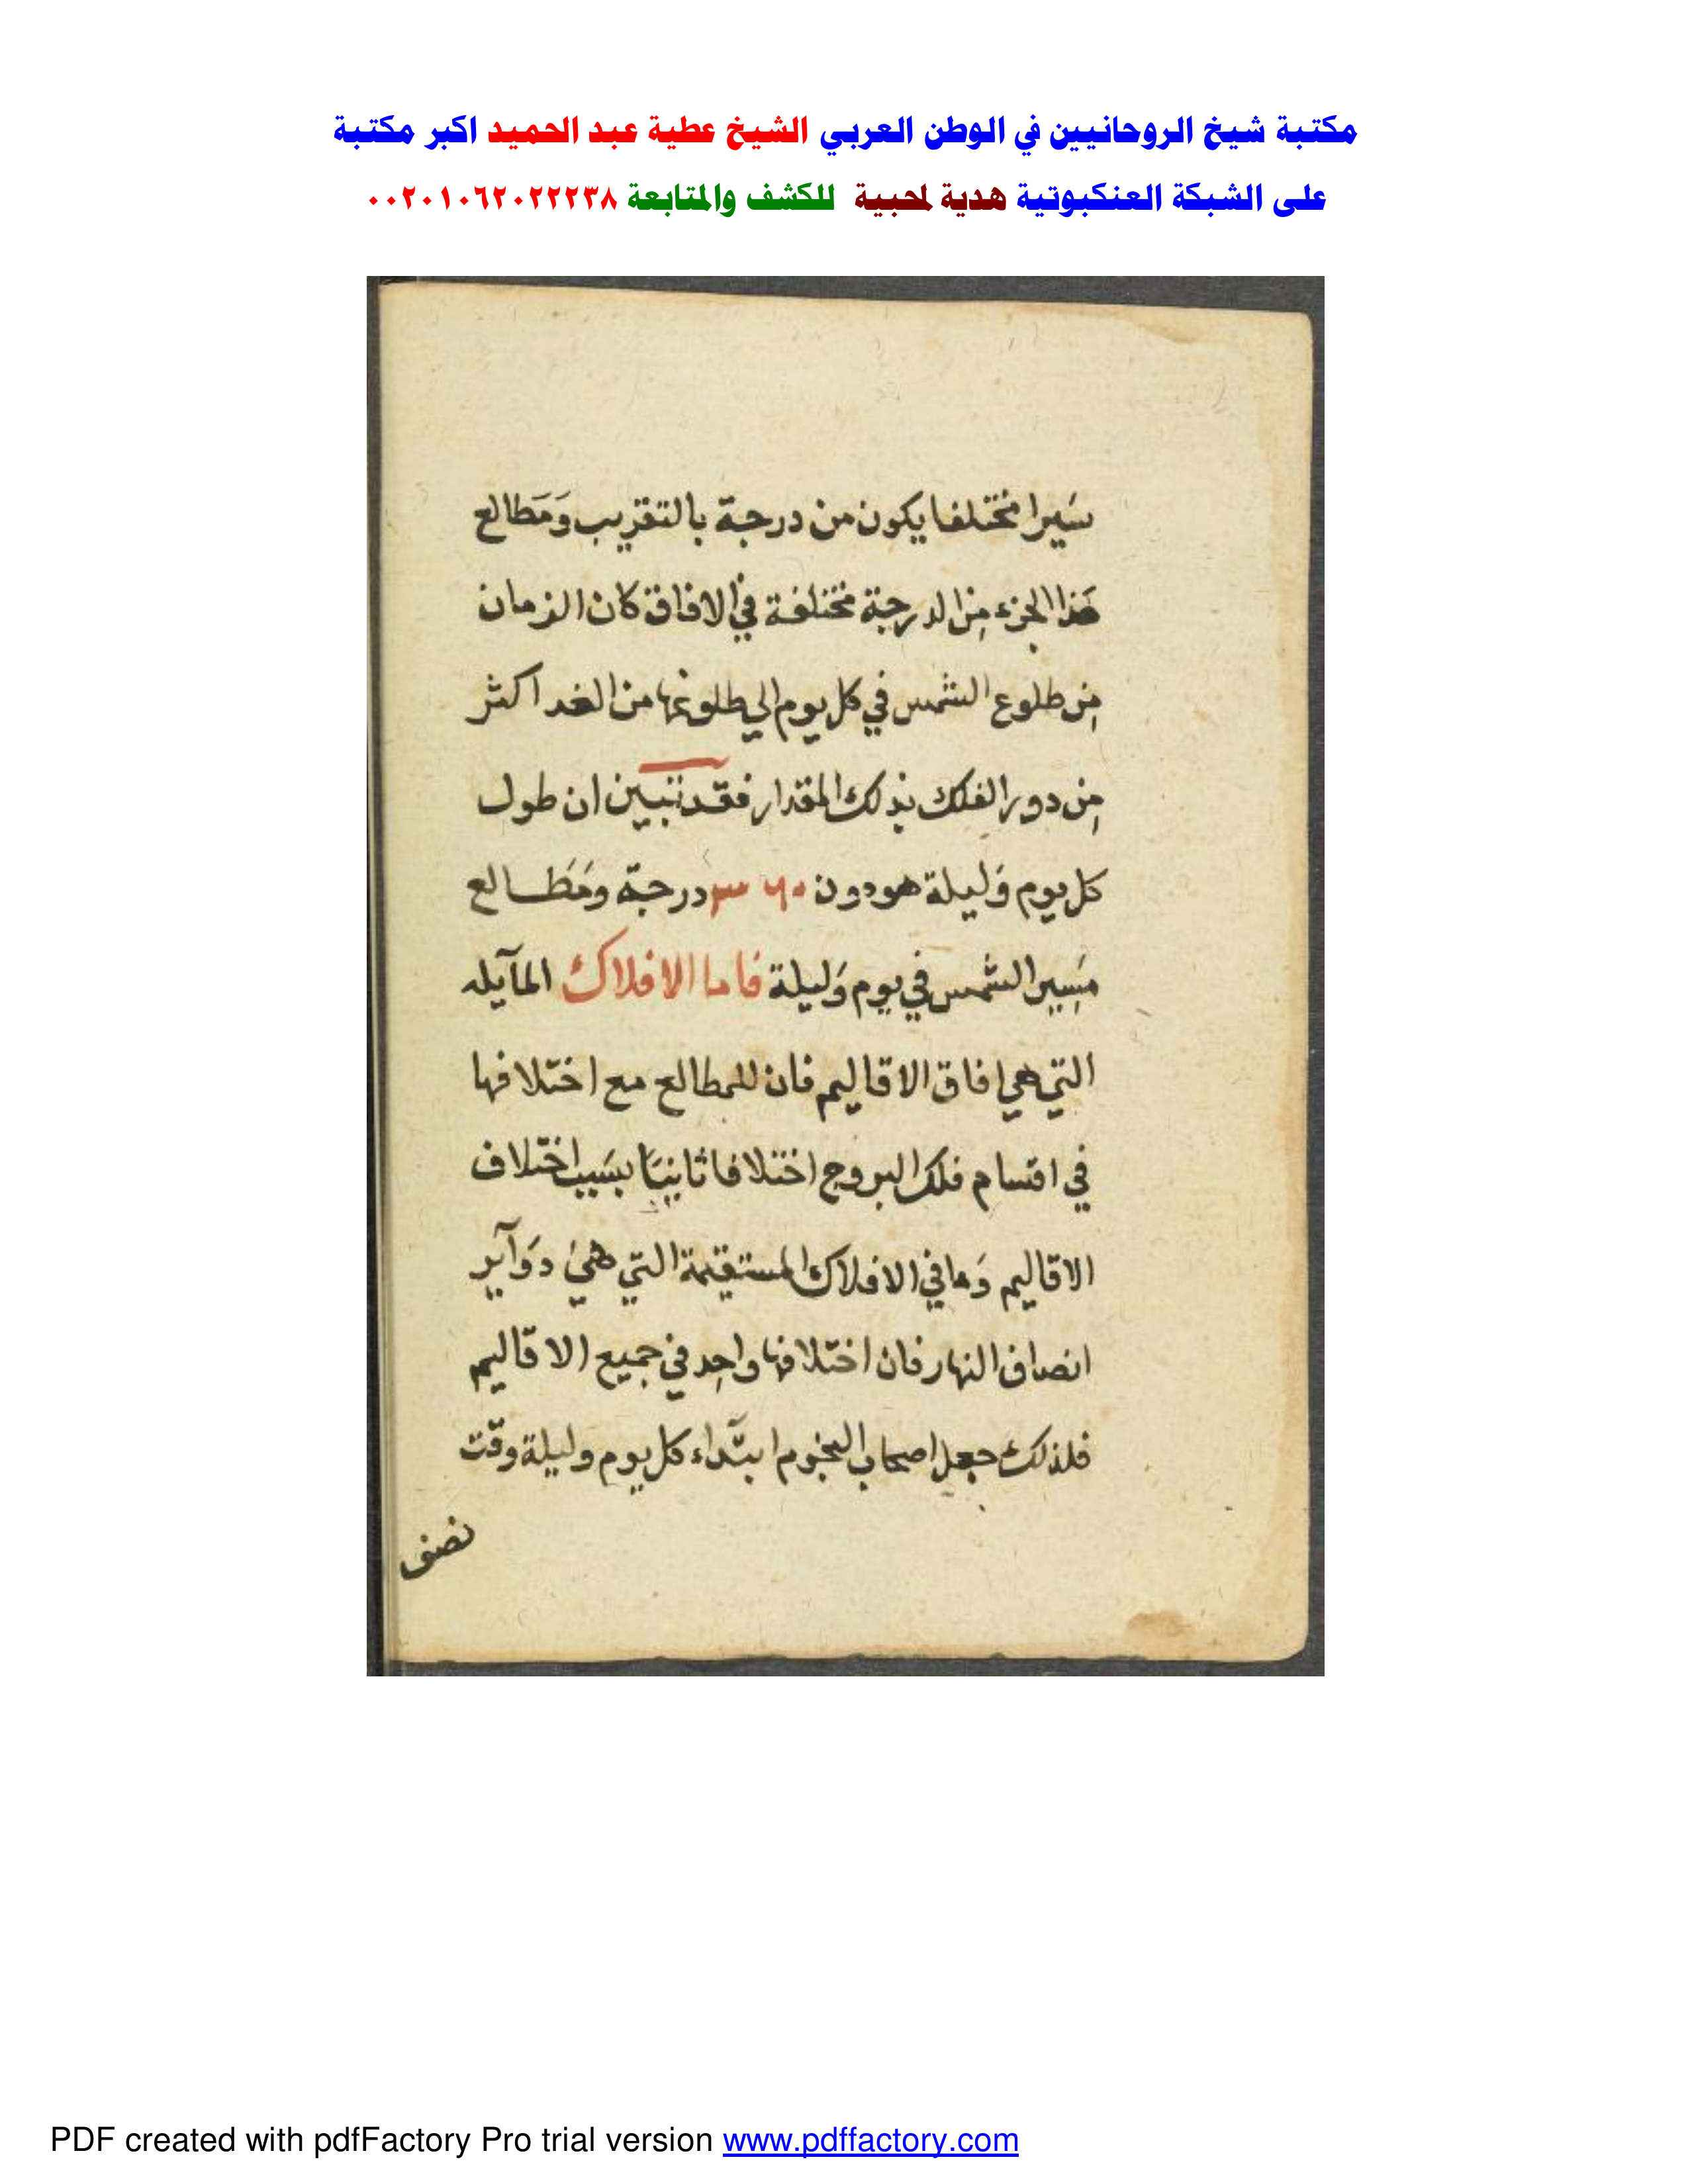 مكتبة شيخ الروحانيين في الوطن العربي الشيخ عطية عبد الحميد اكبر مكتبة
على الشبكة العنكبوتية هدية لمحبية للكشف والمتابعة ٠٠٢٠١٠٦٢٠٢٢٢٣٨
سَيرا مختلفا يكون من درجة بالتقريب وَمَطالع
هَذا الجزء مِن الدرجة مختلفة في الافاق كان الزمان
مِن طلوع الشمس في كل يوم الي طلوعها من الغد اكثر
مِن دور الفلك بذلك المقدار فقد تبين ان طول
كل يوم وَليلة هو دون ٣٦٠ درجة ومَطَالع
مَسِير الشمس في يوم وَليلة فاما الافلاك المآيله
التي هي افاق الاقاليم فان للمطالع مع اختلافها
في اقسام فلك البروج اختلافا ثانيَا بسَبب اختلاف
الاقاليم وَما في الافلاك المستقيمة التي هيَ دوَآير
انصاف النهار فان اختلافها واحِد في جميع الاقاليم
فلذلك جعل اصحاب النجوم ابتداء كل يوم وليلة وقت
نصف
PDF created with pdfFactory Pro trial version www.pdffactory.com